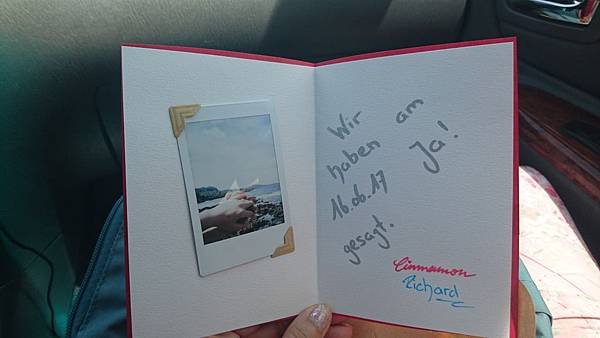 Wir
haben am
16.06.17 Ja!
gesagt.
Cinnamon
Richard